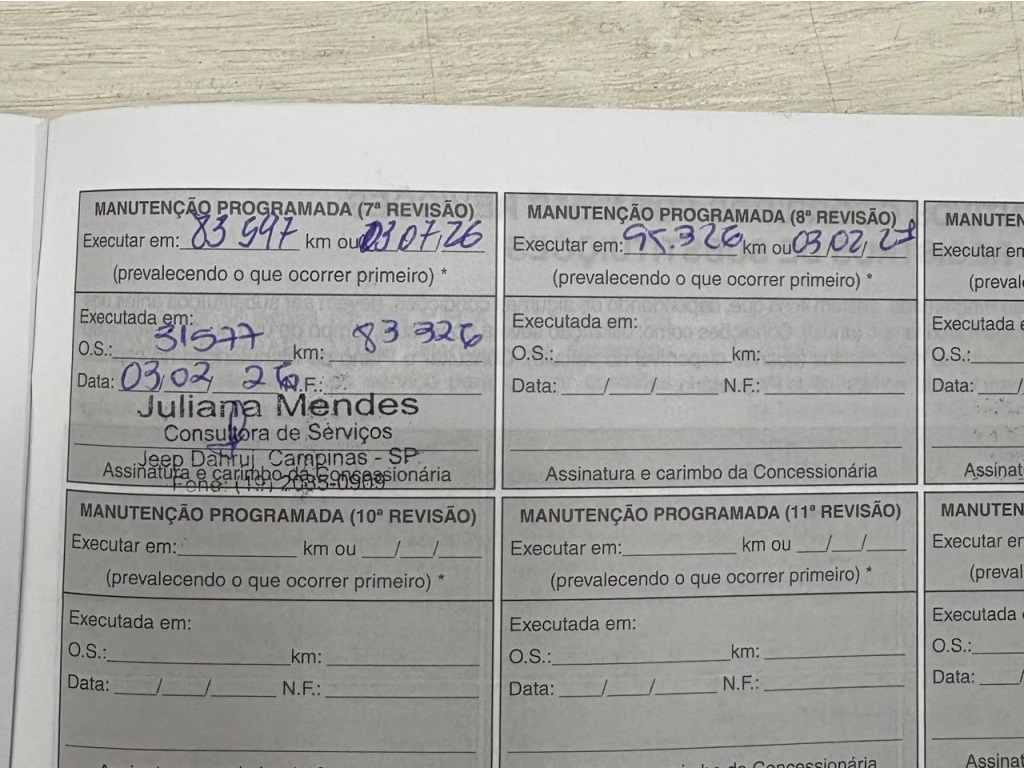 MANUTENÇÃO PROGRAMADA (7ª REVISÃO)
Executar em: 83 597 km ou 03 07, 26
(prevalecendo o que ocorrer primeiro) *
Executada em:
O.S.: 31577 km: 83 326
Data: 03/02/26 N.F.:
Juliana Mendes
Consultora de Serviços
Jeep Dahruj Campinas - SP
Assinatura e carimbo da Concessionária
Fone: (19)
MANUTENÇÃO PROGRAMADA (8ª REVISÃO)
Executar em: 95.326 km ou 03/02/27
(prevalecendo o que ocorrer primeiro) *
Executada em:
O.S.: km:
Data: / / N.F.:
Assinatura e carimbo da Concessionária
MANUTEN
Executar em
(preval
Executada
O.S.:
Data: /
Assinat
MANUTENÇÃO PROGRAMADA (10ª REVISÃO)
Executar em: km ou / /
(prevalecendo o que ocorrer primeiro) *
Executada em:
O.S.: km:
Data: / / N.F.:
MANUTENÇÃO PROGRAMADA (11ª REVISÃO)
Executar em: km ou / /
(prevalecendo o que ocorrer primeiro) *
Executada em:
O.S.: km:
Data: / / N.F.:
Concessionária
MANUTEN
Executar em
(preval
Executada
O.S.:
Data: /
Assinat